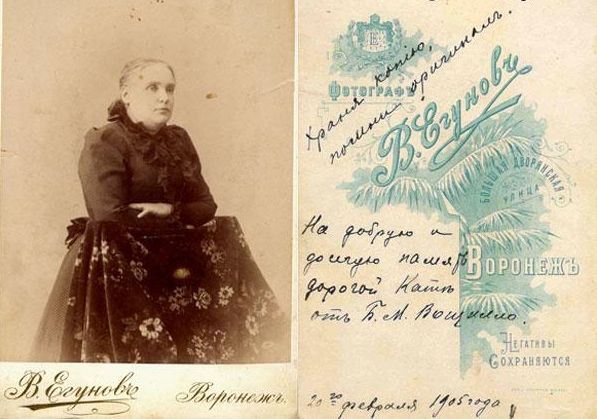 В. Егуновъ
Воронежъ.
Храня копію,
помни оригиналъ.
Е
Фотографъ
В. Егуновъ
Большая Дворянская
улица
Воронежъ
На добрую и
долгую память
дорогой Катѣ
отъ Б. М.
Негативы
Сохраняются
20го февраля 1905 года